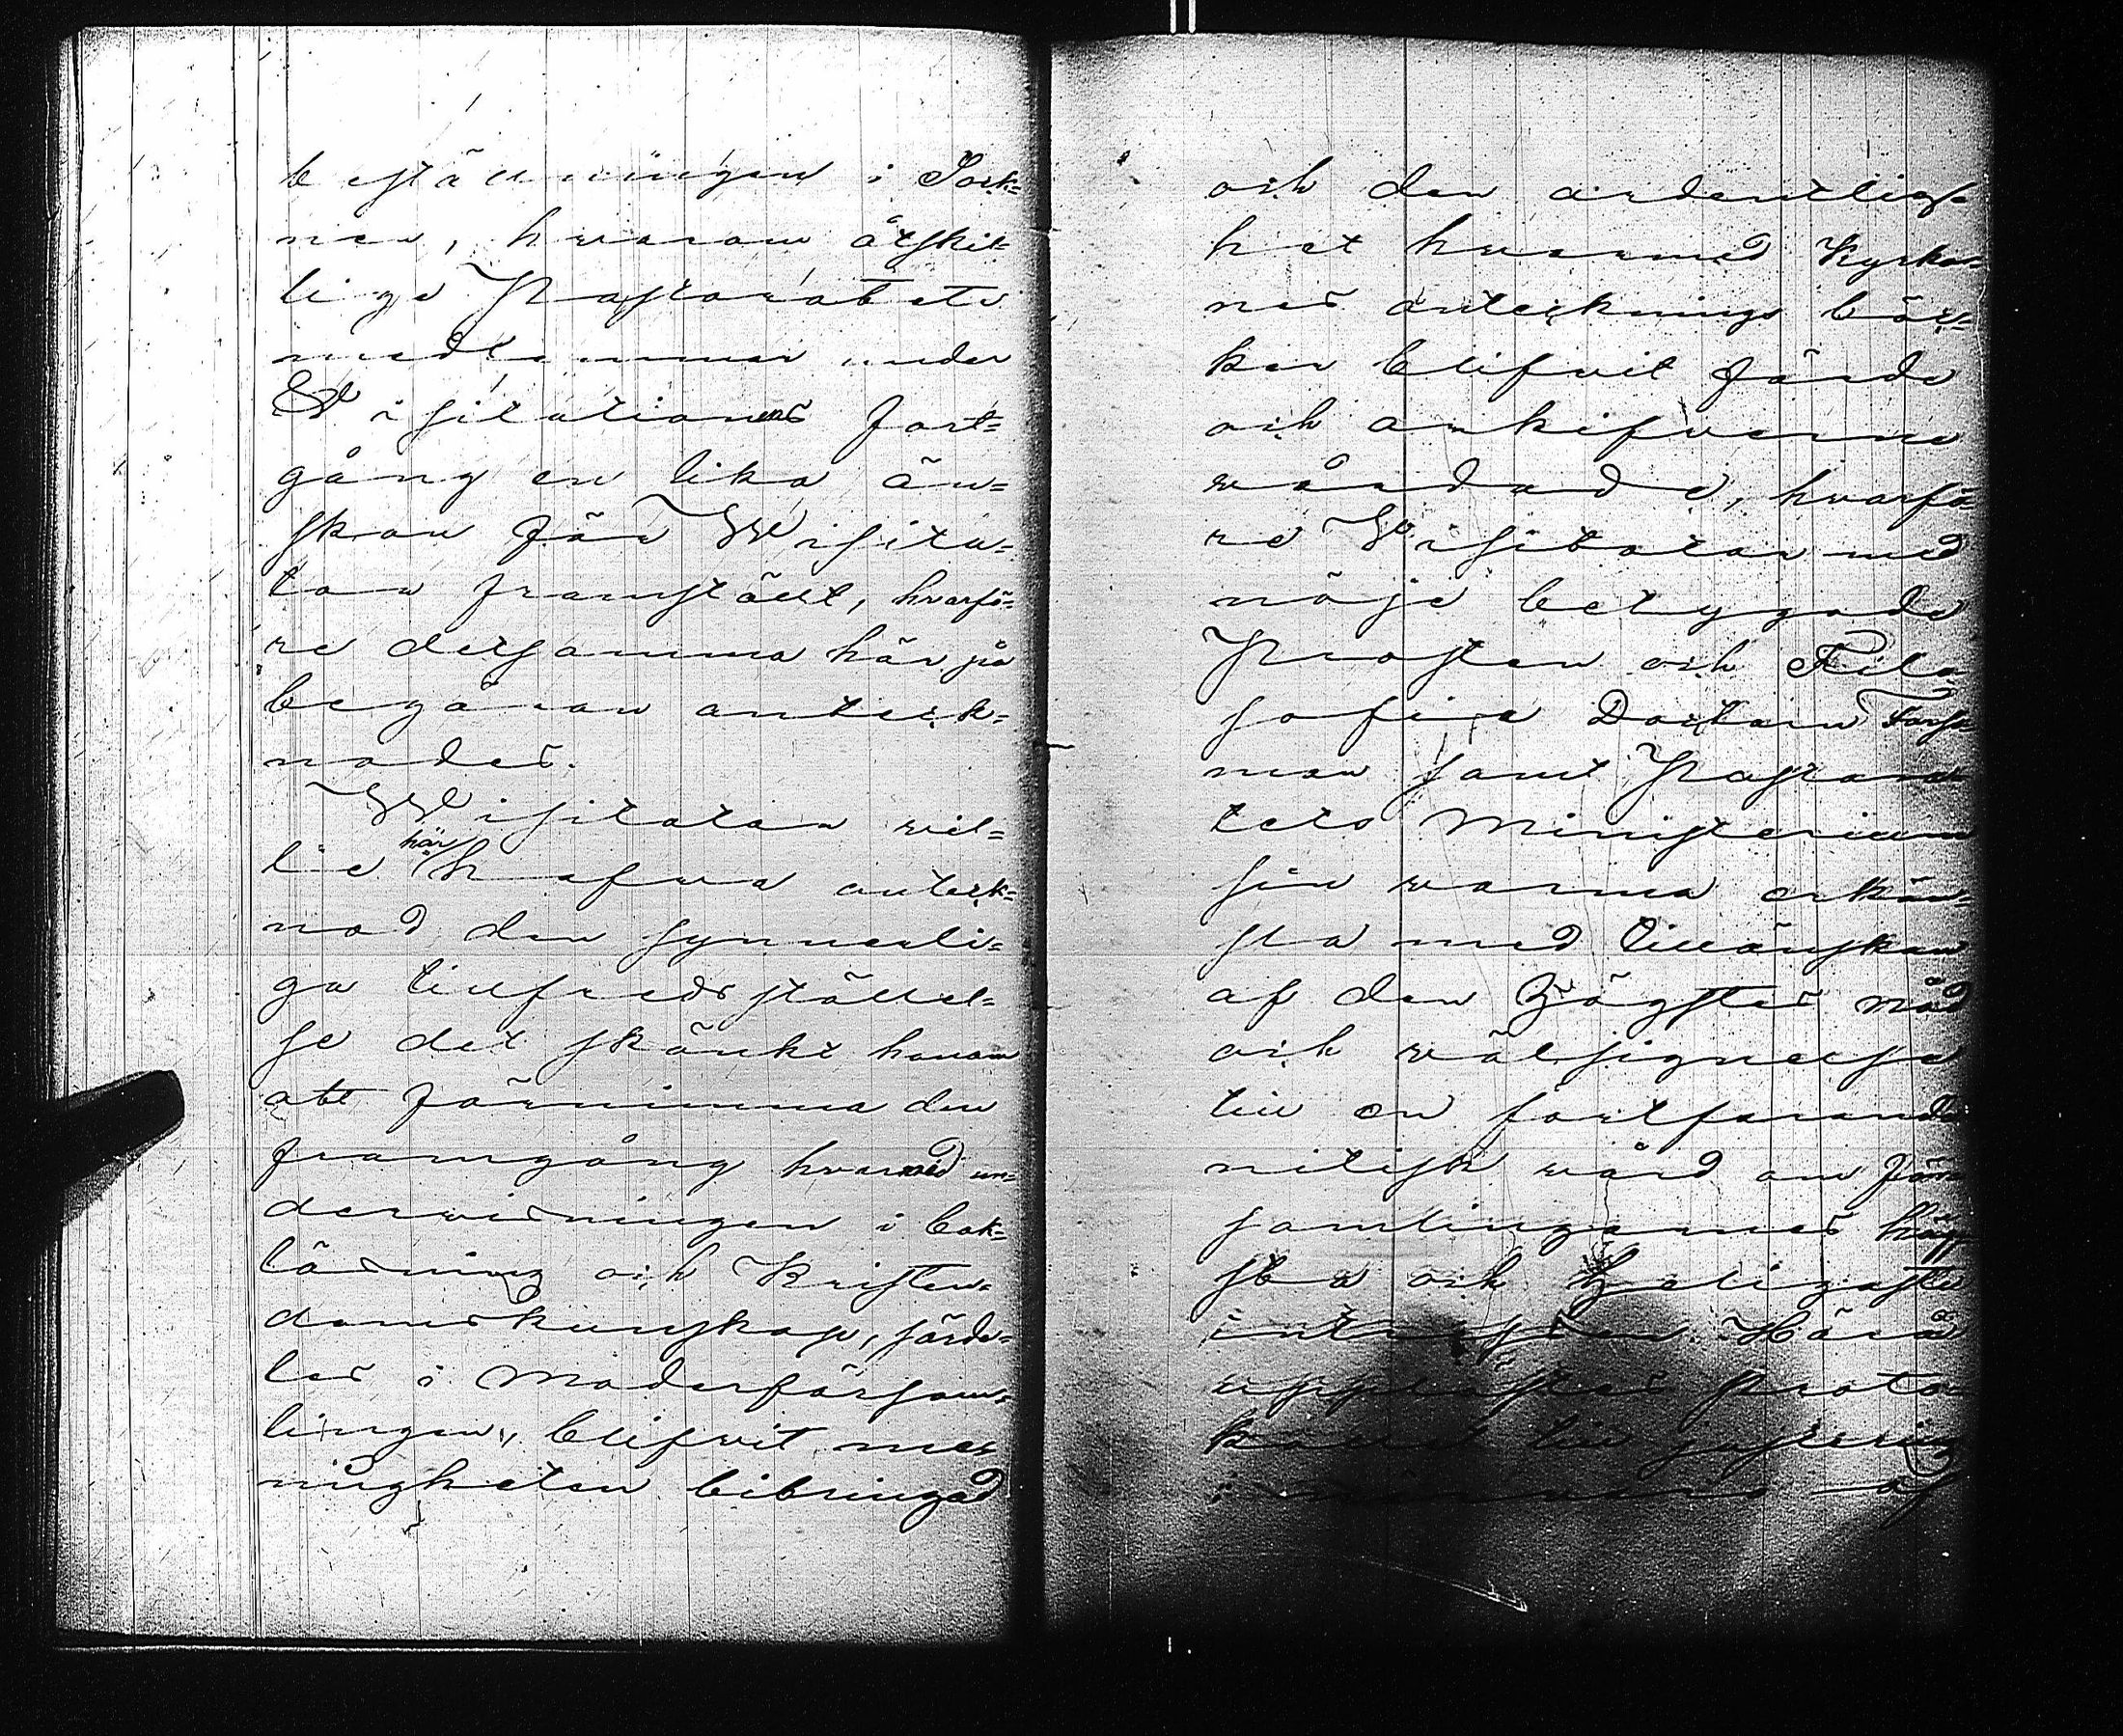 beställningen i Sock=
nen, hvarom åtskil=
lige Pastoratets
medlemmar under
Visitationens fort=
gång en lika ön=
skan för Visita=
torn framstält, hvarfö=
re detsamma här på
begäran anteck=
nades.
Visitatorn vil=
le här hafva anteck=
nad den synnerli=
ga tillfredsställel=
se det skänkt honom
att förnimma den
framgång hvarmed un=
dervisningen i bok=
läsning och Kristen=
domskunskap, särde=
les i Moderförsam=
lingen, blifvit men
nigheten bibringad
och den ordentlig=
het hvarmed Kyrkor=
nes antecknings böc=
ker blifvit förde
och arkifverne
vårdade, hvarfö=
re Visitatorn med
nöje betygade
Prosten och Filo=
sofie Doctorn
man samt Pastora
tets Ministerium
sin varma erkän=
sla med tillönskan
af den Högstes nåd
och välsignelse
till en fortfarande
nitisk vård om För=
samlingarnes hög
sta och heligaste
intressen. Härå
upplästes proto
kollet till justering
i närvaro af